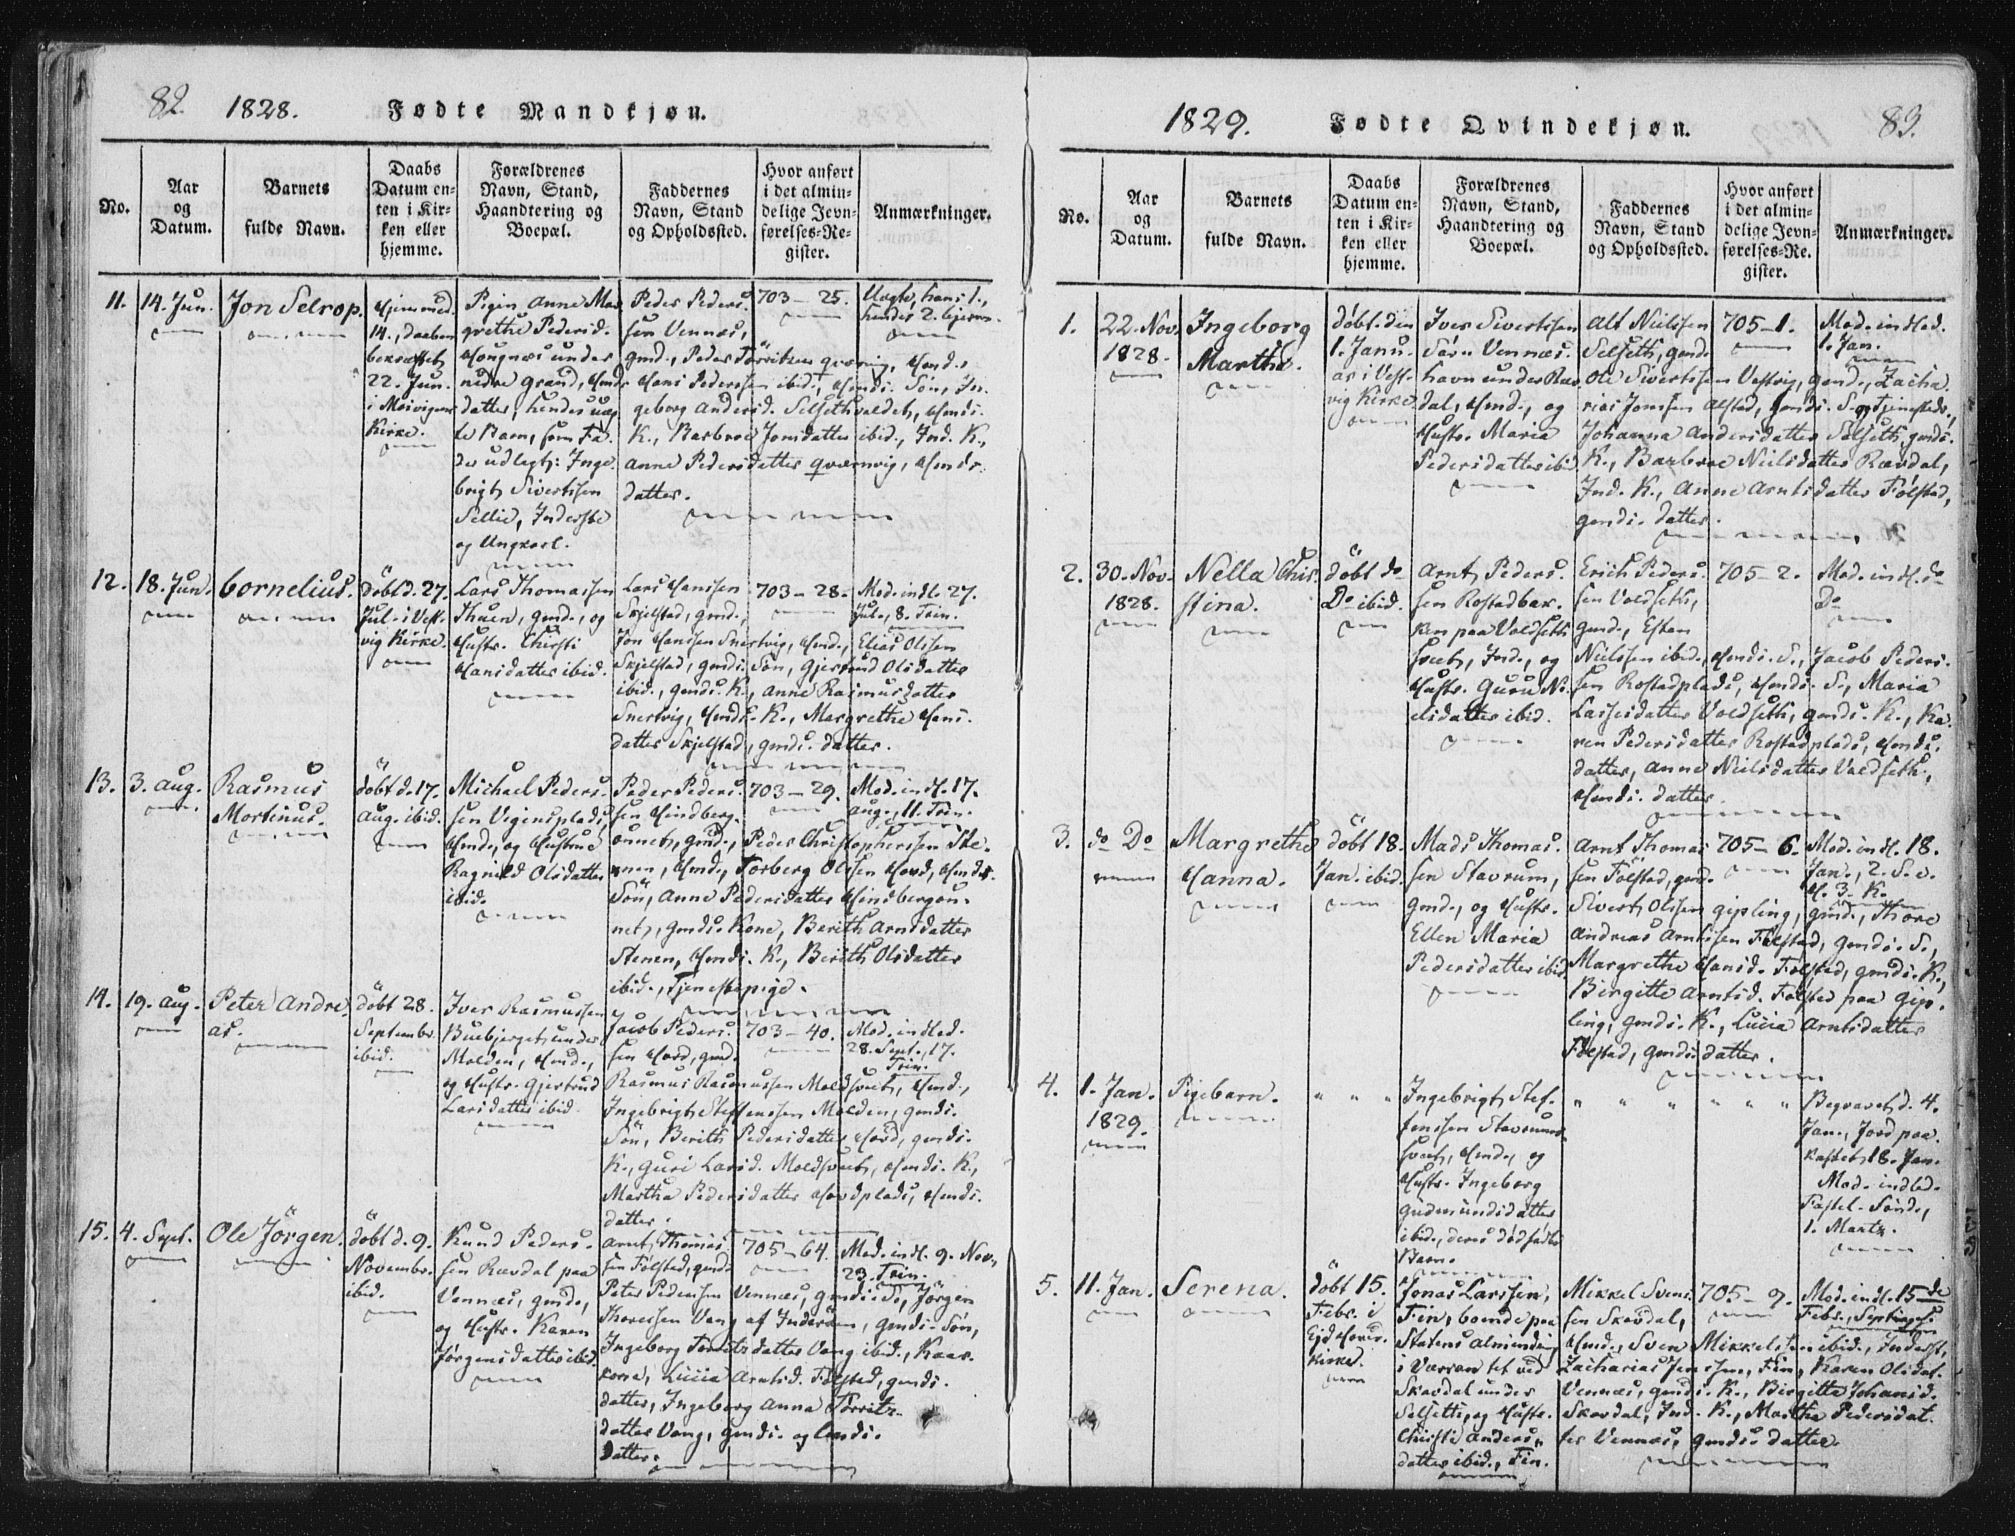 82. 1828. Fødte Mandkjøn.
No.
Aar
og
Datum.
Barnets
fulde Navn.
Daabs
Datum en-
ten i Kir-
ken eller
hjemme.
Forældrenes
Navn, Stand,
Haandtering og
Boepæl.
Faddernes
Navn, Stand
og Opholdssted.
Hvor anført
i det almin-
delige Jevn-
førelses-Re-
gister.
Anmærkninger.
11.
14. Jun.
Jon Selrop.
Hjemmed.
14., Daaben
bekræftet
22. Jun.
i Mosvigens
Kirke.
Pigen Anne Mar-
grethe Pedersd.
under
nedre Grand, Hmds
datter, hendes uæg-
te Barn, som Fa-
der udlagt: Inge-
brigt Sivertsen
Sellie, Inderste
og Ungkarl.
Peder Peders-
sen Vennæs,
Gmd., Peder Qværnvig, Hmd.,
Hans Pederssen ibid., Hmds. Søn, In-
geborg Andersd. Selsethvaldet, Hmds.
K., Barbroe Jonsdatter ibid., Ind. K.,
Anne Pedersdatter Qværnvig, Hmds.
datter.
703 – 25.
Uægte, hans 1.,
hendes 2. Leierm.
12.
18. Jun.
Cornelius.
døbt d. 27.
Jul. i Vest-
vig Kirke.
Lars Thomassen
Thuen, Gmd., og
Hustr. Chirsti
Hansdatter ibid.
Lars Hanssen
Skjelstad, Gmd.,
Jon Hanssen Snertvig, Hmd., Elias Olssen
Skjelstad, Gmds. Søn, Gjertrud Olsdatter
ibid., Gmds. K., Anne Rasmusdatter
Snertvig, Hmds. K., Margrethe Hans-
datter Skjelstad, Gmds. datter.
703 – 28.
Mod. indl. 27.
Jul., 8. Trin.
13.
3. Aug.
Rasmus
Mortinus.
døbt d. 17.
Aug. ibid.
Michael Peders-
sen Vigensplads,
Hmd., og Hustrue
Ragnild Olsdatter
ibid.
Peder Peders-
sen Hindberg-
aunet, Gmd., Peder Christophersen Ste-
nen, Hmd., Torberg Olssen Hovd, Hmds.
Søn, Anne Pedersdatter Hindbergau-
net, Gmds. Kone, Berith Arnsdatter
Stenen, Hmds. K., Berith Olsdatter
ibid., Tjenestepige.
703 – 29.
Mod. indl. 17.
Aug., 11. Trin.
14.
19. Aug.
Peter Andre-
as.
døbt 28.
Septembr.
ibid.
Iver Rasmussen
Buebjerget under
Molden, Hmd.,
og Hustr. Gjertrud
Larsdatter ibid.
Jacob Peders-
sen Hovd, Gmd.
Rasmus Rasmussen Moldsvet, Hmd.,
Ingebrigt Steffenssen Molden, Gmds.
Søn, Berith Pedersdatter Hovd, Gmds.
K., Guri Larsd. Moldsvet, Hmds. K.,
Martha Pedersdatter Hovdplads, Hmds.
datter.
703 – 40.
Mod. indled.
28. Sept., 17.
Trin.
15.
4. Sept.
Ole Jörgen.
döbt d. 9.
Novembr.
ibid.
Knud Peders-
sen Rævdal paa
Vennæs, Gmd.,
og Hustr. Karen
Jørgensdatter ibid.
Arnt Thomas-
sen Følstad, Gmd.
Peter Pedersen Vennæs, Gmds. S., Jørgen
Thoressen Vang af Inderöen, Gmds. Søn,
Ingeborg Torritzdatter Vang ibid., Kaar-
kone, Lucia Arntsd. Følstad, Gmds.
datter, Ingeborg Anna Torritz-
datter Vang, Gmds. og
datter.
705 – 64.
Mod. indl. 9. Nov.,
23. Trin.
1829. Fødte Qvindekjøn. 83.
No.
Aar
og
Datum.
Barnets
fulde Navn.
Daabs
Datum en-
ten i Kir-
ken eller
hjemme.
Forældrenes
Navn, Stand,
Haandtering og
Boepæl.
Faddernes
Navn, Stand
og Opholdssted.
Hvor anført
i det almin-
delige Jevn-
førelses-Re-
gister.
Anmærkninger.
1.
22. Nov.
1828.
Ingeborg
Martha.
døbt den
1. Janu-
ar i Vest-
vig Kirke.
Iver Sivertssen
Sørn Vennæs-
havn under Ræv-
dal, Hmd., og
Hustr. Maria
Pedersdatter ibid.
Alt Nielssen
Selseth, Gmd.
Ole Sivertssen Vestvig, Gmd., Zacha-
rias Jonssen Alstad, Gmds. S. og Tjenestedr.,
Johanna Andersdatter Selseth, Gmds.
K., Barbroe Nielsdatter Rævdal,
Ind. K., Anne Arntsdatter Følstad,
Gmds. datter.
705 – 1.
Mod. indled.
1. Jan.
2.
30. Nov.
1828.
Nella Chir-
stina.
døbt do
Do ibid.
Arnt Peders-
sen Rostadbak-
ken paa Voldseth
svet, Ind., og
Hustr. Guru Ni-
elsdatter ibid.
Erich Peders-
sen Voldseth,
Gmd., Esten
Nielssen ibid., Hmds. S., Jacob Peders-
sen Rostadplads, Hmds. S., Maria
Lassesdatter Voldseth, Gmds. K., Ka-
ren Pedersdatter Rostadplads, Hmds.
datter, Anne Nielsdatter Voldseth,
Hmds. datter.
705 – 2.
Mod. indl. do
Do
3.
do Do
Margrethe
Hanna.
døbt 18.
Jan. ibid.
Mads Thomas-
sen Stavrum,
Gmd., og Hustr.
Ellen Maria
Pedersdatter ibid.
Arnt Thomas-
sen Følstad, Gmd.
Sivert Olssen Gipling, Gmd., Thore
Andreas Arntssen Følstad, Gmds. S.,
Margrethe Hansd. Følstad, Gmds. K.,
Birgitte Arntsd. Følstad paa Gip-
ling, Gmds. K., Lucia Arntsdatter
Følstad, Gmds. datter.
705 – 6.
Mod. indl. 18.
Jan., 2. S. e.
H. 3. K.
4.
1. Jan.
1829.
Pigebarn.
" " "
Ingebrigt Stef-
fenssen Stavrum-
svet, Hmd., og
Hustr. Ingeborg
Gudmundsdatter
ibid., deres dødfødte
Barn.
" " " " " "
Begravet d. 4.
Jan., Jord paa-
kastet 18. Jan.
Mod. indled.
Fastel. Sønd.,
1. Martz.
5.
11. Jan.
Serena.
døbt 15.
Febr. i

Kirke.
Jonas Larssen,
Fin, boende paa
Statens Alminding
i Værran tet ved
Skavdal under
Selseth, og Hustr.
Chirsti Anders-
datter ibid., Fin.
Mikkel Svens-
sen Skavdal,
Hmd., Sven Mikkelsen ibid., Inderst,
Zacharias Jenssen, Fin, Karen Olsdat.
Vennæs, Gmds. K., Birgitta Johansd.
Skavdal, Ind. K., Martha Pedersdat-
ter Vennæs, Gmds. datter.
705 – 9.
Mod. indl. 15de
Febr., Septuages.